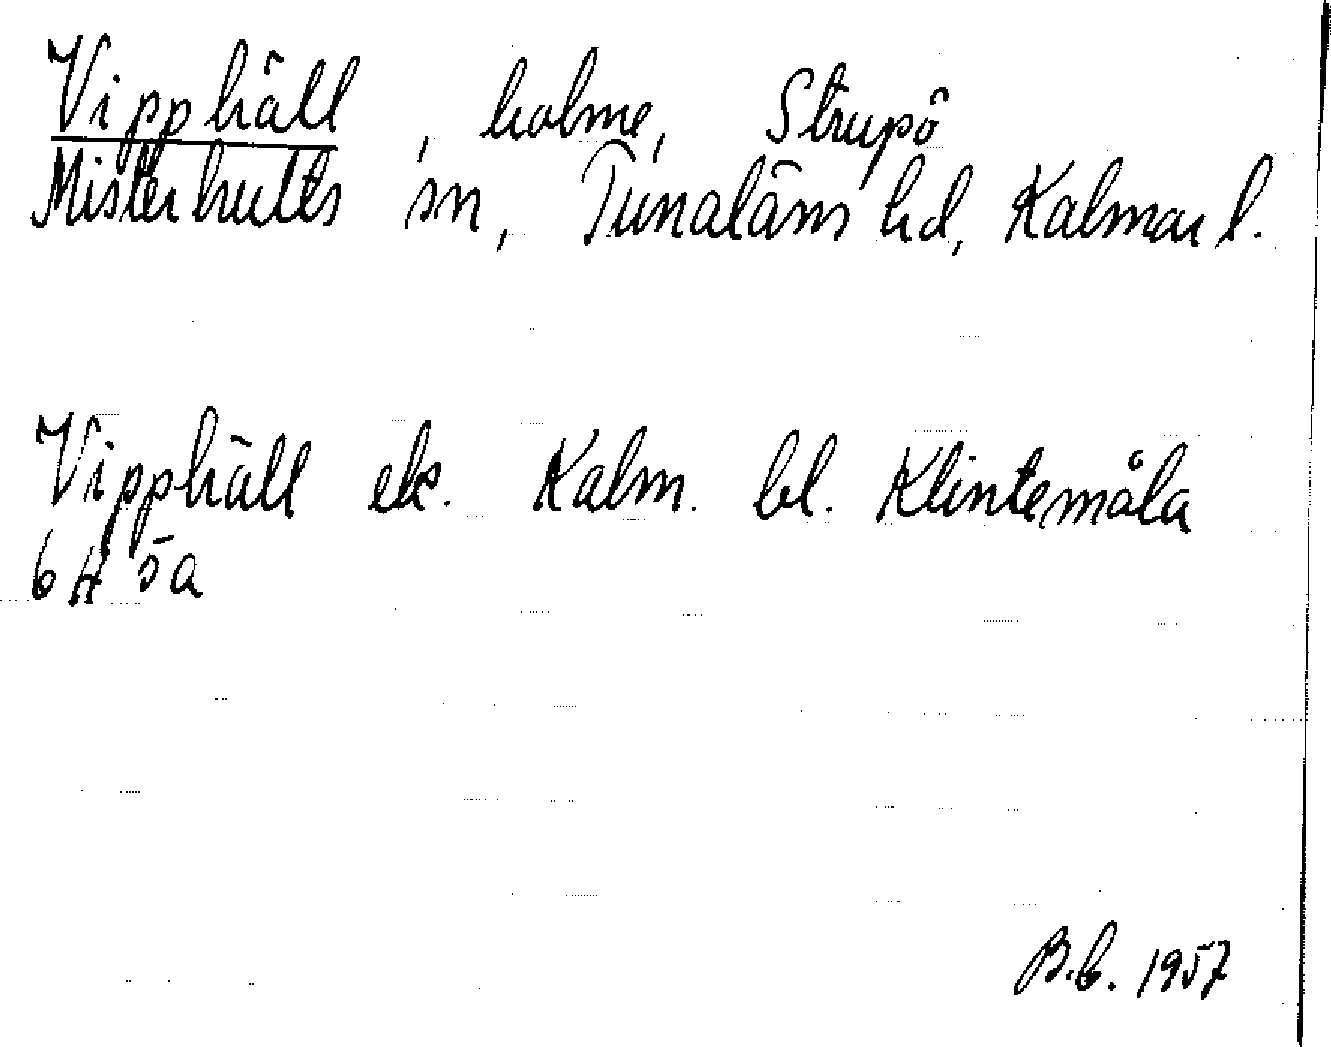 Vipphäll, holme, Strupö
Misterhults sn, Tunaläns hd, Kalmar l.
Vipphäll ek. Kalm. bl. Klintemåla
6H 5a
B.E. 1957